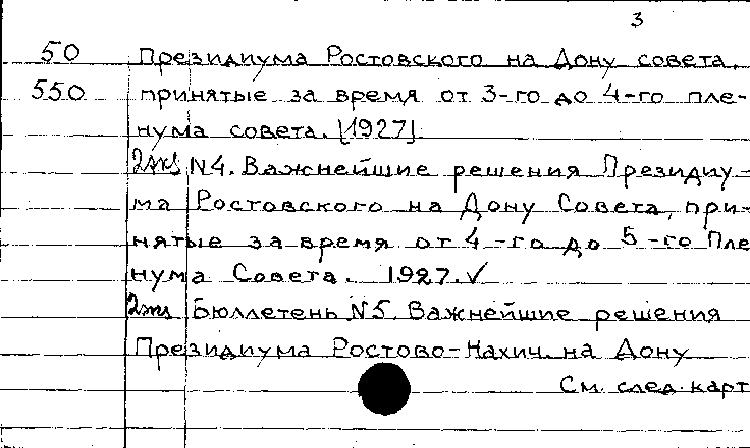 3
50 Президиума Ростовского на Дону совета,
550 принятые за время от 3-го до 4-го пле-
нума совета. [1927]
2экз N4. Важнейшие решения Президиу-
ма Ростовского на Дону Совета, при-
нятые за время от 4-го до 5-го Пле
нума Совета. 1927. ✓
2экз Бюллетень N5. Важнейшие решения
Президиума Ростово-Нахич. на Дону
См. след. карт